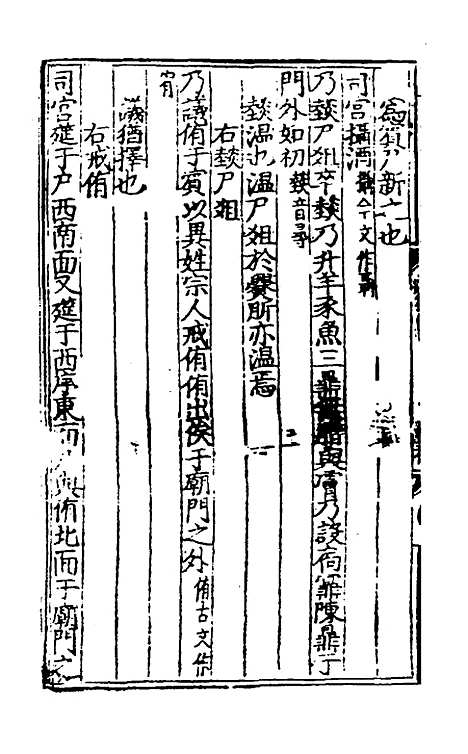 為賓尸新之也
司宮攝酒攝今文作聶
乃燅尸俎卒燅乃升羊豕魚三鼎與膚乃設扃鼏陳鼎于
門外如初燅音尋
燅溫也溫尸俎於爨所亦溫焉
右燅尸俎
乃議侑于賓以異姓宗人戒侑侑出俟于廟門之外侑古文作
宥
議猶擇也
右戒侑
司宮筵于户西南面又筵于西序東面與侑北面于廟門之